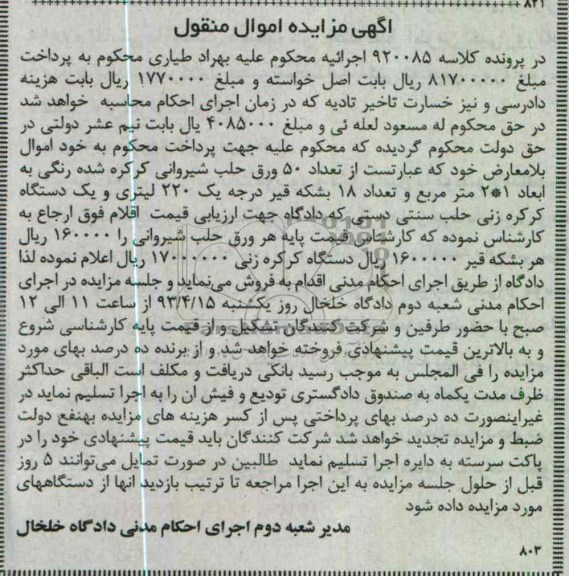 ۸۲۱
آگهی مزایده اموال منقول
در پرونده کلاسه ۹۲۰۰۸۵ اجرائیه محکوم علیه بهراد طیاری محکوم به پرداخت
مبلغ ۸۱۷۰۰۰۰۰ ریال بابت اصل خواسته و مبلغ ۱۷۷۰۰۰۰ ریال بابت هزینه
دادرسی و نیز خسارت تاخیر تادیه که در زمان اجرای احکام محاسبه خواهد شد
در حق محکوم له مسعود لعله ئی و مبلغ ۴۰۸۵۰۰۰ یال بابت نیم عشر دولتی در
حق دولت محکوم گردیده که محکوم علیه جهت پرداخت محکوم به خود اموال
بلامعارض خود که عبارتست از تعداد ۵۰ ورق حلب شیروانی کرکره شده رنگی به
ابعاد ۱*۲ متر مربع و تعداد ۱۸ بشکه قیر درجه یک ۲۲۰ لیتری و یک دستگاه
کرکره زنی حلب سنتی دستی که دادگاه جهت ارزیابی قیمت اقلام فوق ارجاع به
کارشناس نموده که کارشناس قیمت پایه هر ورق حلب شیروانی را ۱۶۰۰۰۰ ریال
هر بشکه قیر ۱۶۰۰۰۰۰ ریال دستگاه کرکره زنی ۱۷۰۰۰۰۰۰ ریال اعلام نموده لذا
دادگاه از طریق اجرای احکام مدنی اقدام به فروش می‌نماید و جلسه مزایده در اجرای
احکام مدنی شعبه دوم دادگاه خلخال روز یکشنبه ۹۳/۴/۱۵ از ساعت ۱۱ الی ۱۲
صبح با حضور طرفین و شرکت کنندگان تشکیل و از قیمت پایه کارشناسی شروع
و به بالاترین قیمت پیشنهادی فروخته خواهد شد و از برنده ده درصد بهای مورد
مزایده را فی المجلس به موجب رسید بانکی دریافت و مکلف است الباقی حداکثر
ظرف مدت یکماه به صندوق دادگستری تودیع و فیش ان را به اجرا تسلیم نماید در
غیراینصورت ده درصد بهای پرداختی پس از کسر هزینه های مزایده بهنفع دولت
ضبط و مزایده تجدید خواهد شد شرکت کنندگان باید قیمت پیشنهادی خود را در
پاکت سرسته به دایره اجرا تسلیم نماید طالبین در صورت تمایل می‌توانند ۵ روز
قبل از حلول جلسه مزایده به این اجرا مراجعه تا ترتیب بازدید انها از دستگاههای
مورد مزایده داده شود
مدیر شعبه دوم اجرای احکام مدنی دادگاه خلخال
۸۰۳